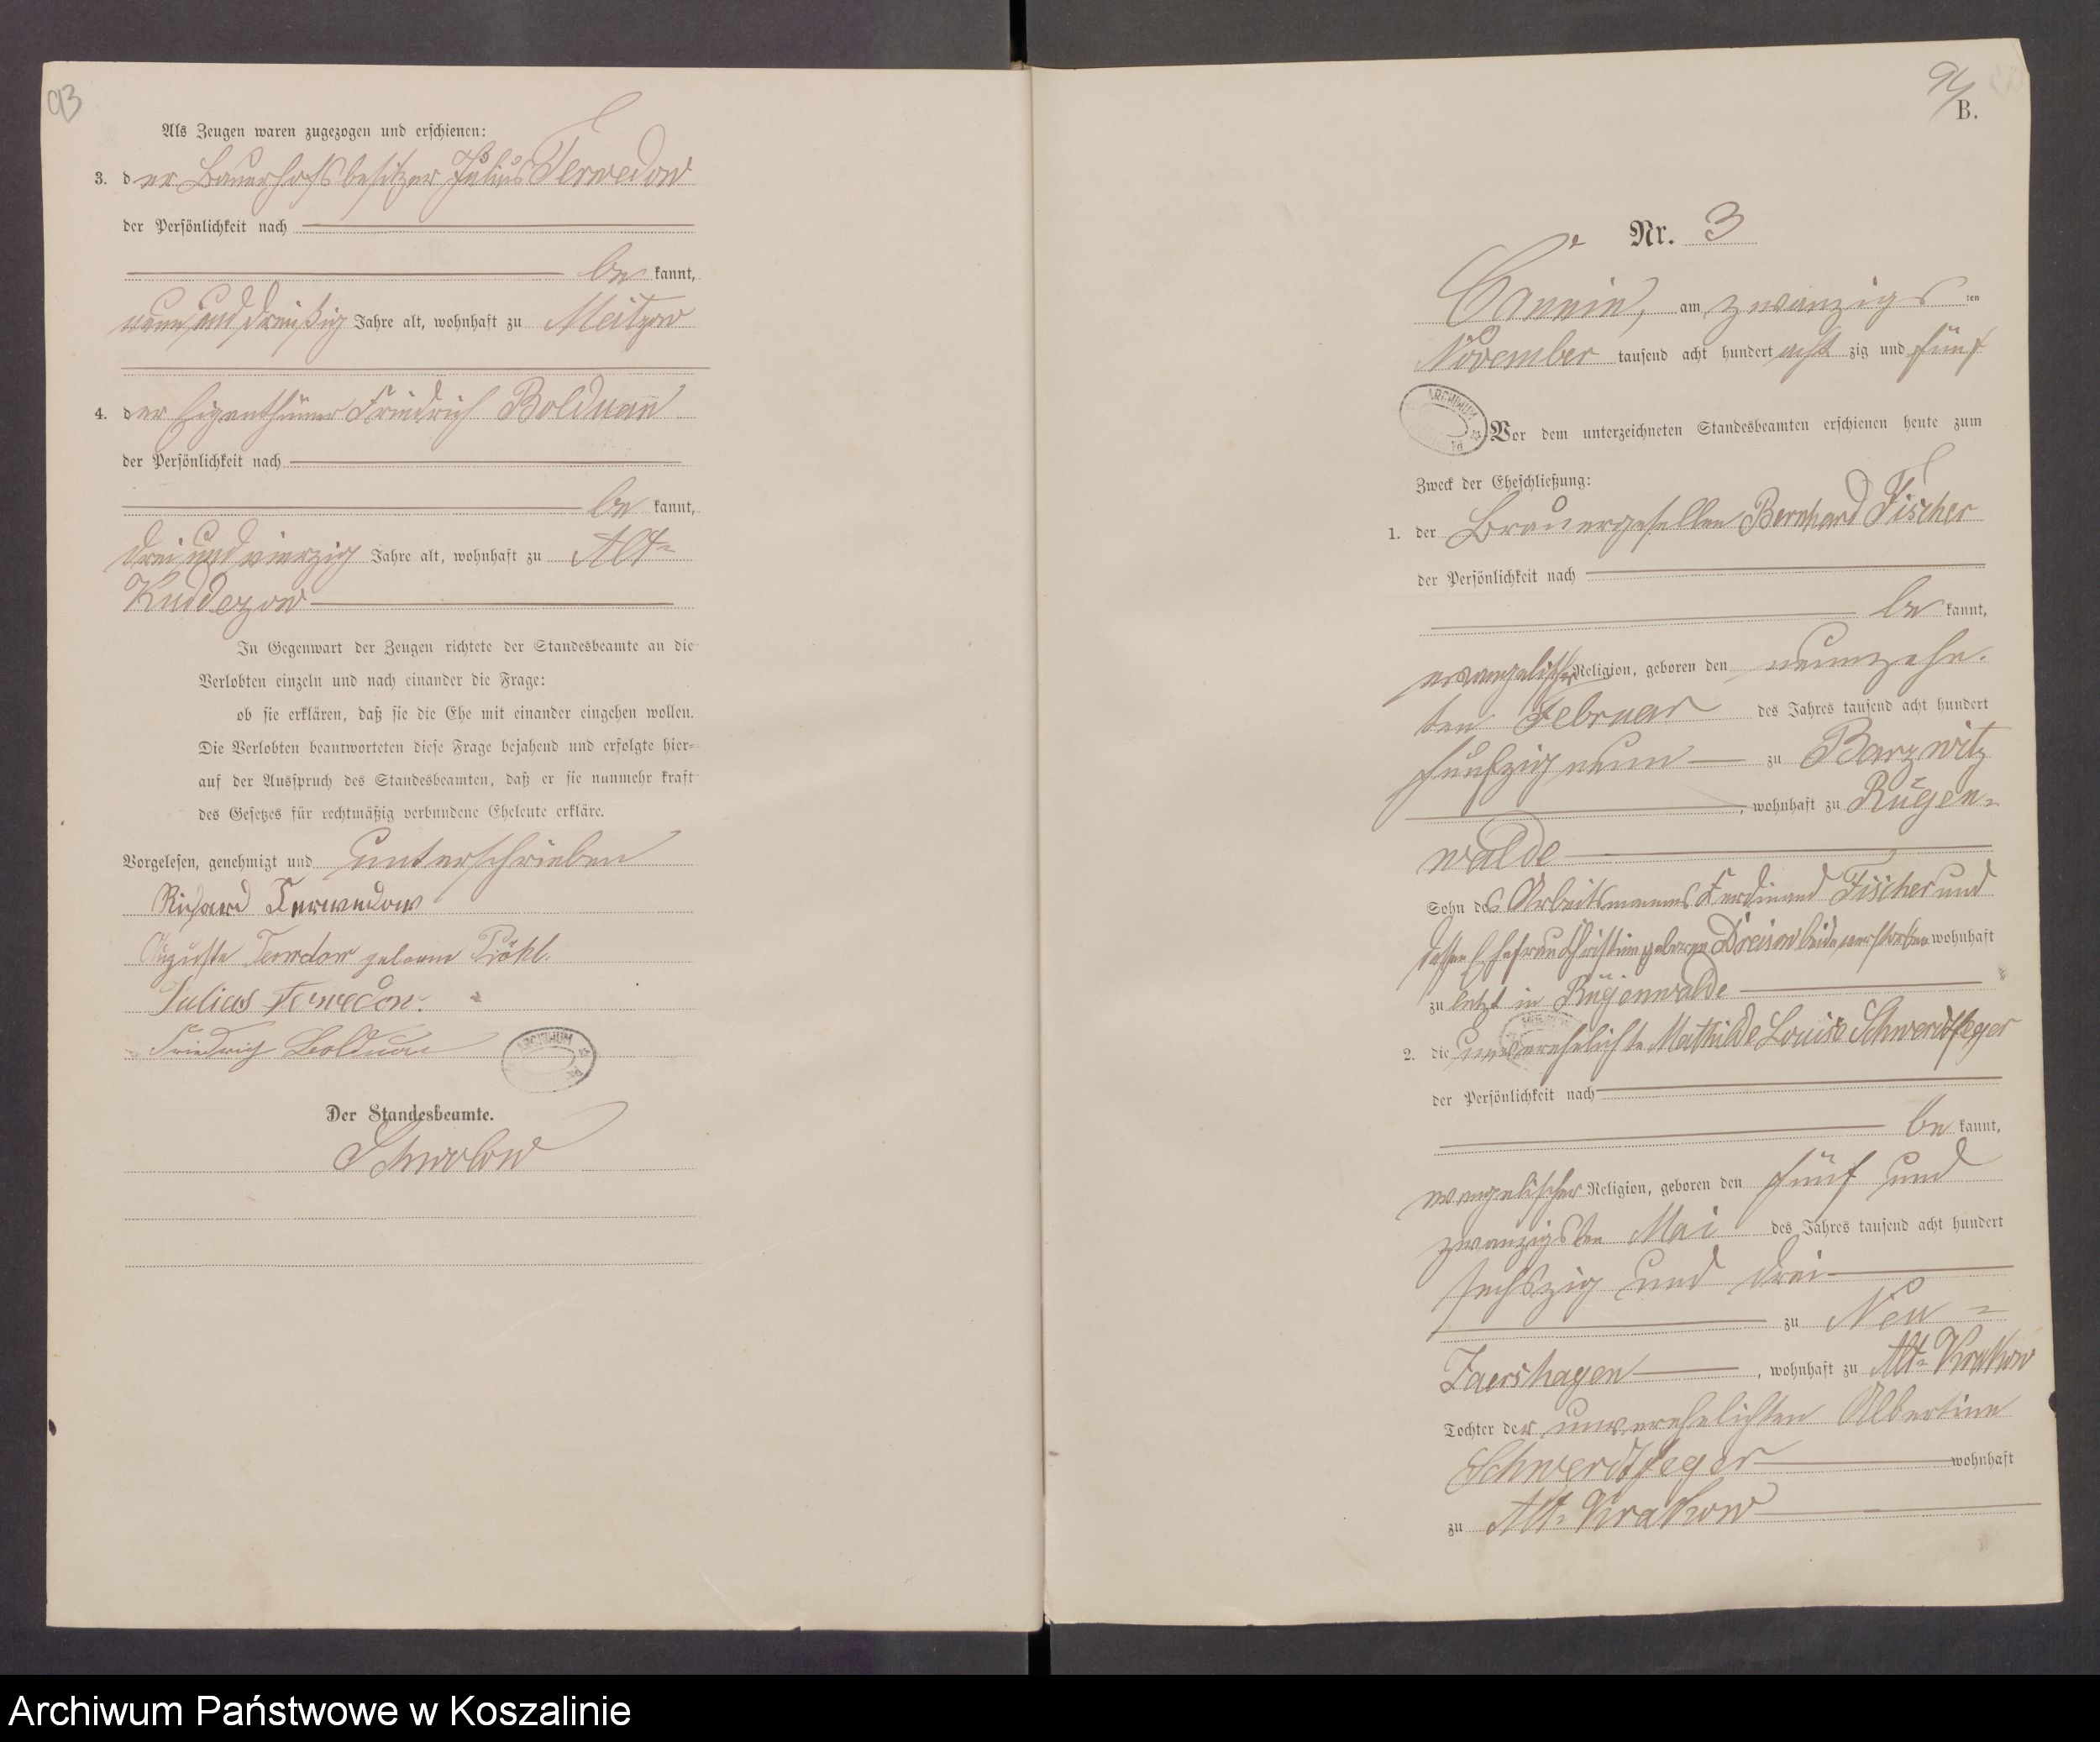 93
Als Zeugen waren zugezogen und erschienen:
3. der Bauerhofsbesitzer Julius Terwedow
der Persönlichkeit nach
be kannt,
neun und dreißig Jahre alt, wohnhaft zu Meitzow
4. der Eigenthümer Friedrich Bolduan
der Persönlichkeit nach
be kannt,
drei und vierzig Jahre alt, wohnhaft zu Alt-
Kuddezow
In Gegenwart der Zeugen richtete der Standesbeamte an die
Verlobten einzeln und nach einander die Frage:
ob sie erklären, daß sie die Ehe mit einander eingehen wollen.
Die Verlobten beantworteten diese Frage bejahend und erfolgte hier-
auf der Ausspruch des Standesbeamten, daß er sie nunmehr kraft
des Gesetzes für rechtmäßig verbundene Eheleute erkläre.
Vorgelesen, genehmigt und unterschrieben
Richard Terwedow
Auguste Terwedow geborne
Julius Terwedow.
Friedrich Bolduan
ARCHIWUM
Der Standesbeamte.
Schwolow
94
B.
Nr. 3
Cannin, am zwanzigs ten
November tausend acht hundert acht zig und fünf
ARCHIWUM
Vor dem unterzeichneten Standesbeamten erschienen heute zum
Zweck der Eheschließung:
1. der Brauergesellen Bernhard Fischer
der Persönlichkeit nach
be kannt,
evangelischer Religion, geboren den neunzehn-
ten Februar des Jahres tausend acht hundert
fünfzig neun zu Barzwitz
, wohnhaft zu Rügen-
walde
Sohn des Arbeitsmannes Ferdinand Fischer und
dessen Ehefrau Christine geboren Dreisow beide verstorben wohnhaft
zu letzt in Rügenwalde
2. die unverehelichte Mathilde Louise Schwerdtfeger
der Persönlichkeit nach
be kannt,
evangelischer Religion, geboren den fünf und
zwanzigsten Mai des Jahres tausend acht hundert
sechszig und drei
zu Neu-
Jaershagen, wohnhaft zu Alt-Krakow
Tochter der unverehelichten Albertine
Schwerdtfeger wohnhaft
zu Alt-Krakow
Archiwum Państwowe w Koszalinie